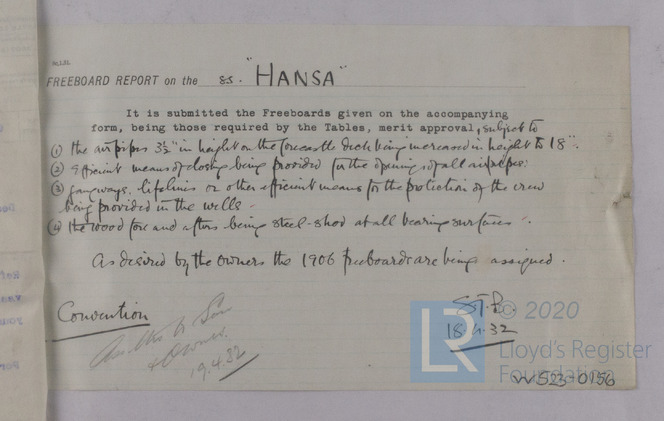 FREEBOARD REPORT on the ss. "HANSA"
It is submitted the Freeboards given on the accompanying
form, being those required by the Tables, merit approval, subject to
(1) the air pipes 3½" in height on the forecastle deck being increased in height to 18".
(2) Efficient means of closing being provided for the openings of all airpipes.
(3) gangways, lifelines or other efficient means for the protection of the crew
being provided in the wells.
(4) The wood fore and afters being steel-shod at all bearing surfaces.
As desired by the owners the 1906 freeboards are being assigned.
Convention
18.4.32
& Owner.
19.4.32
© 2020
LR
Lloyd's Register
Foundation
W523-0156